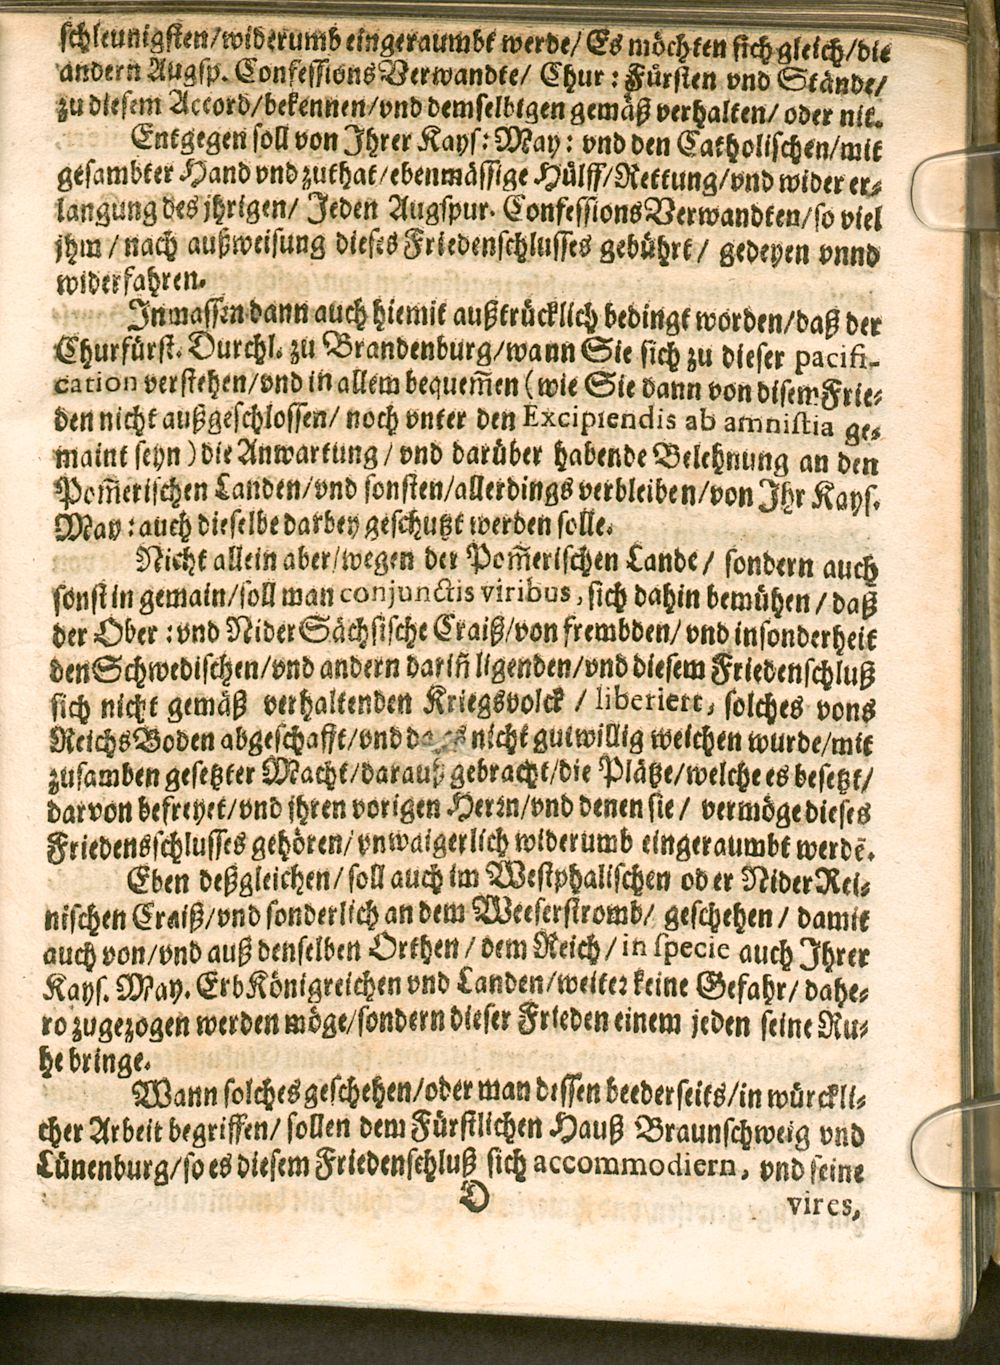 schleunigsten/widerumb eingeraumbt werde/ Es möchten sich gleich/die
andern Augsp. Confessions Verwandte/ Chur: Fürsten vnd Stände/
zu diesem Accord/bekennen/vnd demselbigen gemäß verhalten/ oder nit.
Entgegen soll von Jhrer Kays: May: vnd den Catholischen/mit
gesambter Hand vnd zuthat/ebenmässige Hülff/Rettung/vnd wider er-
langung des jhrigen/ Jeden Augspur. Confessions Verwandten/so viel
jhm/nach außweisung dieses Friedenschlusses gebührt/ gedeyen vnnd
widerfahren.
Jnmassen dann auch hiemit außtrücklich bedingt worden/daß der
Churfürst. Durchl. zu Brandenburg/wann Sie sich zu dieser pacifi-
cation verstehen/vnd in allem bequem̃en (wie Sie dann von disem Frie-
den nicht außgeschlossen/ noch vnter den Excipiendis ab amnistia ge-
maint seyn) die Anwartung/vnd darüber habende Belehnung an den
Pom̃erischen Landen/vnd sonsten/allerdings verbleiben/von Jhr Kays.
May: auch dieselbe darbey geschutzt werden solle.
Nicht allein aber/wegen der Pom̃erischen Lande/ sondern auch
sonst in gemain/soll man conjunctis viribus, sich dahin bemühen/daß
der Ober: vnd Nider Sächsische Craiß/von frembden/ vnd insonderheit
den Schwedischen/vnd andern dariñ ligenden/vnd diesem Friedenschluß
sich nicht gemäß verhaltenden Kriegsvolck/ liberiert, solches vons
Reichs Boden abgeschafft/vnd da es nicht gutwillig weichen wurde/mit
zusamben gesetzter Macht/darauß gebracht/die Plätze/welche es besetzt/
darvon befreyet/vnd jhren vorigen Herrn/vnd denen sie/ vermöge dieses
Friedensschlusses gehören/vnwaigerlich widerumb eingeraumbt werdẽ.
Eben deßgleichen/soll auch im Westphalischen oder Nider Rei-
nischen Craiß/vnd sonderlich an dem Weeserstromb/ geschehen/ damit
auch von/vnd auß denselben Orthen/dem Reich/in specie auch Jhrer
Kays. May. Erb Königreichen vnd Landen/weiter keine Gefahr/ dahe-
ro zugezogen werden möge/sondern dieser Frieden einem jeden seine Ru-
he bringe.
Wann solches geschehen/oder man dessen beederseits/in würckli-
cher Arbeit begriffen/ sollen dem Fürstlichen Hauß Braunschweig vnd
Lünenburg/so es diesem Friedenschluß sich accommodiern, vnd seine
D
vires,